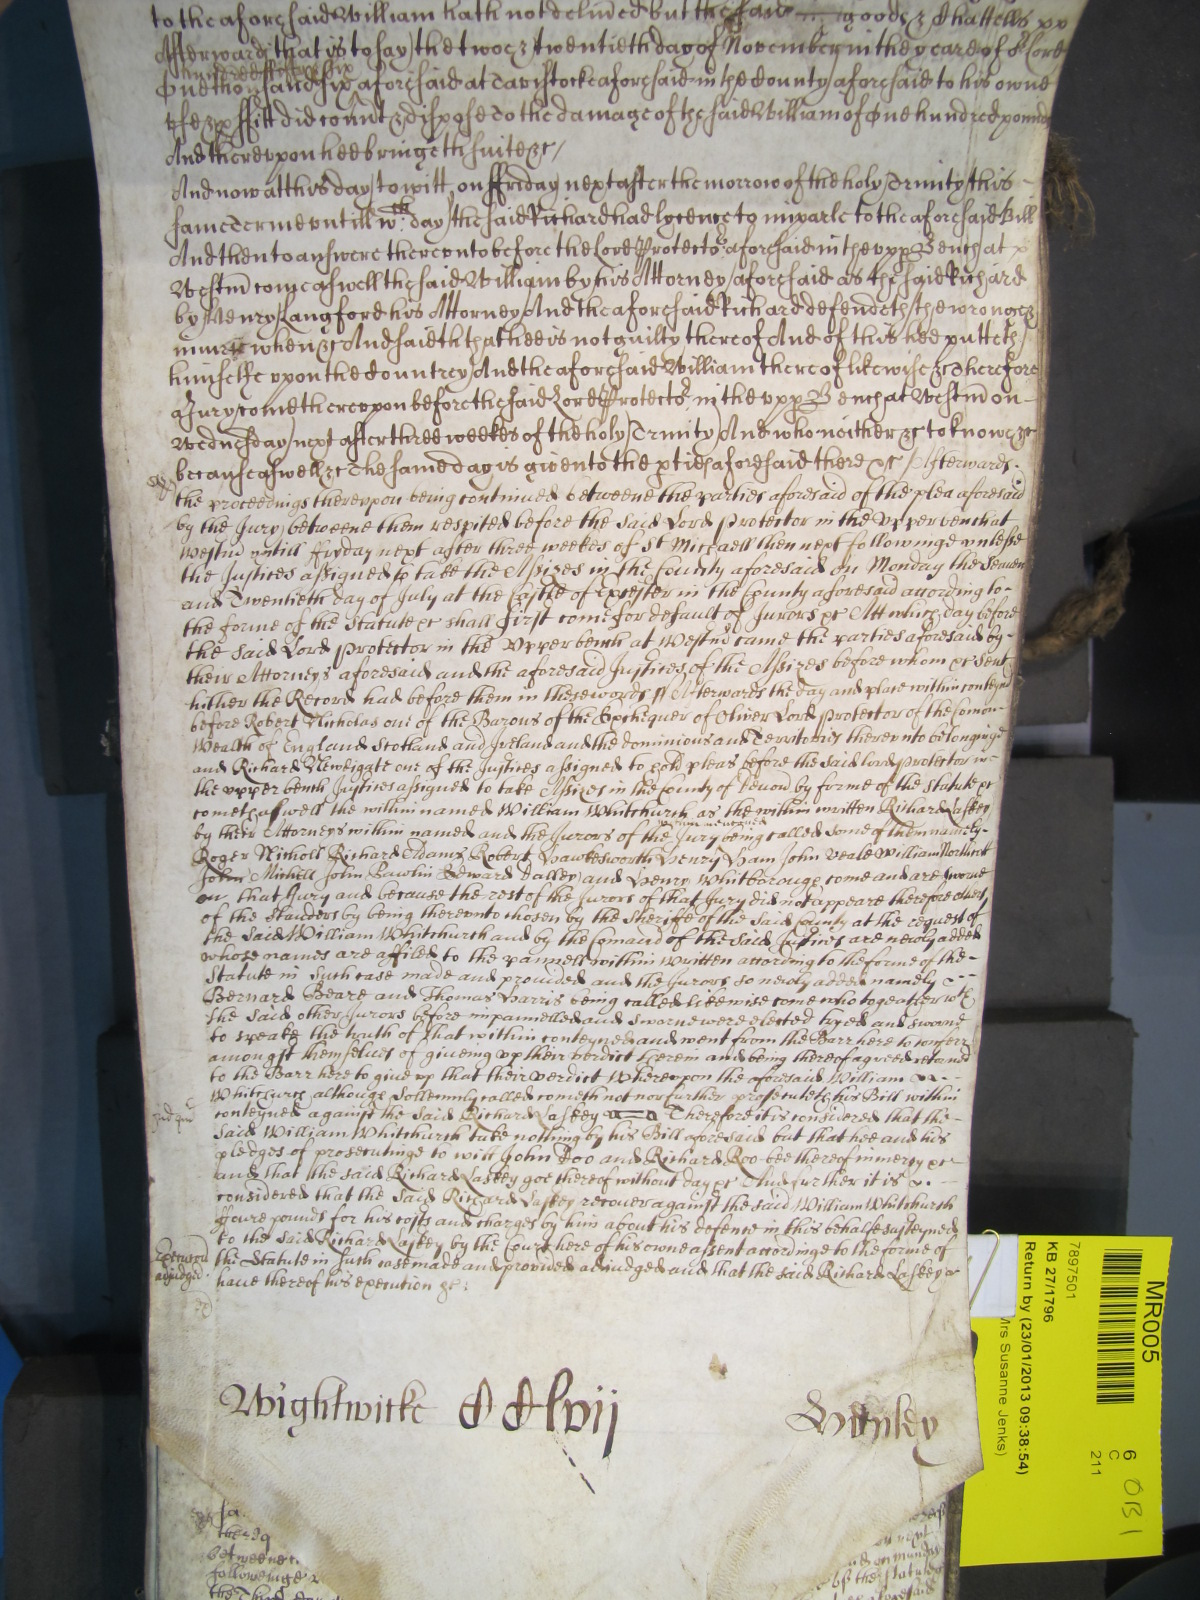 to the aforesaid William hath not deliued but the said goods & Chattells
Afterwards that is to say the two & twentieth day of November in the yeare of o Lord
hundred fiftie six
One thousand six aforesaid at Tavistocke aforesaid in the County aforesaid to his owne
vse & pffitt did convt & dispose To the damage of the said William of One hundred pounds
And therevpon hee bringeth suite &c /
And now at this day to witt on ffriday next after the morrow of the holy Trinity this
same Terme vntill wch day the said Richard had lycence to imparle to the aforesaid Bill
And then to answere therevnto before the Lord Protector aforesaid in the vpp Bench at
Westm come aswell the said William by his Attorney aforesaid as the said Richard
by Henry Langford his Attorney And the aforesaid Richard defendeth the wronge &
iniurie when &c And saith that hee is not guilty thereof And of this hee putteth
himselfe vpon the Countrey And the aforesaid William thereof likewise &c Therefore
a Jury come therevpon before the said Lord Protector in the vpp Bench at Westm on
Wednesday next after three weekes of the holy Trinity And who neither &c to knowe &c
because aswell &c The same day is given to the pties aforesaid there &c / Afterwards
the proceedings therevpon being continued betweene the parties aforesaid of the plea aforesaid
by the Jury betweene them respited before the said Lord Protector in the vpper bench at
Westm vntill ffryday next after three weekes of St Michaell then next followinge vnlesse
the Justices assigned to take the Assizes in the County aforesaid on Monday the Seaven
and Twentieth day of July at the Castle of Exester in the County aforesaid according to
the forme of the Statute &c shall first come for default of Jurors &c Att which day before
the said Lord Protector in the Vpper bench at Westm came the parties aforesaid by
their Attorneys aforesaid and the aforesaid Justices of the Assizes before whom &c sent
hither the Record had before them in these words // Afterwards the day and place within conteyned
before Robert Nicholas one of the Barons of the Exchequer of Oliver Lord Protector of the Comon
Wealth of England Scotland and Ireland and the dominions and Territories therevnto belonginge
and Richard Newdigate one of the Justices assigned to hold pleas before the said lord protector in
the vpper bench Justices assigned to take Assizes in the County of Devon by forme of the statute &c
cometh aswell the within named William Whitchurch as the within written Richard Laskey
by their Attorneys within named and the Jurors of the Jury being called some of them namely
Roger Nicholl Richard Adams Robert Hawkesworth Henry Ham John Veale William
John Michell John Rawlin Edward Dalley and Henry Whitborouge come and are sworne
on that Jury and because the rest of the Jurors of that Jury did not appeare therefore others
of the standers by being therevnto chosen by the Sheriffe of the said County at the request of
the said William Whitchurch and by the Comand of the said Justices are newly added
whose names are affiled to the pannell within written according to the forme of the
Statute in such case made and provided and the Jurors so newly added namely
Bernard Beare and Thomas Harris being called likewise come who togeather wth
the said other Jurors before impannelled and sworne were elected tryed and sworne
to speake the truth of that within conteyned and went from the Barr here to conferr
amongst themselues of giueing vp their verdict therein and being thereof agreed returned
to the Barr here to giue vp that their verdict Wherevpon the aforesaid William
Whitchurch although sollemnly called cometh not nor further prosecuteth his Bill within
conteyned against the said Richard Laskey Therefore it is considered that the
said William Whitchurch take nothing by his Bill aforesaid but that hee and his
pledges of prosecutinge to witt John Doo and Richard Roo bee thereof in mercy &c
and that the said Richard Laskey goe thereof without day &c And further it is
considered that the said Richard Laskey recouer against the said William Whitchurch
ffoure pounds for his costs and charges by him about his defence in this behalfe susteyned
to the said Richard Laskey by the Court here of his owne assent accordinge to the forme of
Execucon
adiudged
the Statute in such case made and provided adiudged and that the said Richard Laskey
haue thereof his execution &c :
Wightwicke CClvij Henley
betweene
followinge
MR005
6
C
211
OB1
7897501
KB 27/1796
Return by (23/01/2013 09:38:54)
Mrs Susanne Jenks)